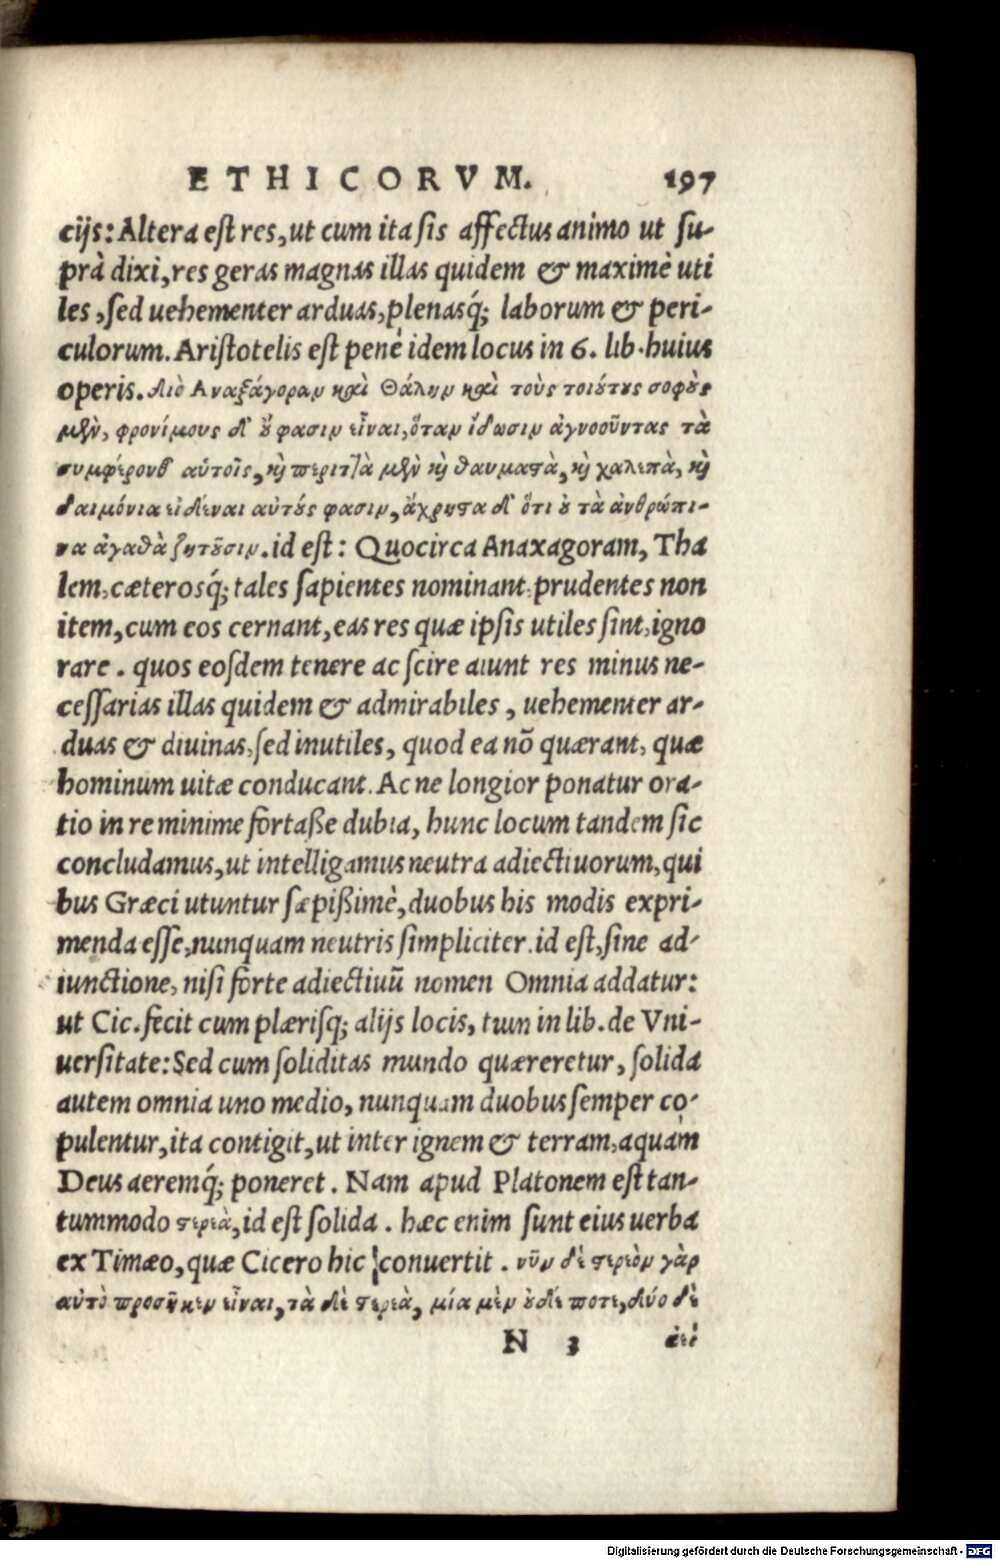 ETHICORVM. 197
cijs: Altera est res, ut cum ita sis affectus animo ut su-
prà dixi, res geras magnas illas quidem & maximè uti
les, sed uehementer arduas, plenasq́; laborum & peri-
culorum. Aristotelis est penè idem locus in 6. lib. huius
operis. διὸ Αναξάγοραν καὶ Θάλην καὶ τοὺς τοιούτους σοφοὺς
μὲν, φρονίμους δ' οὔ φασιν εἶναι, ὅταν ἴδωσιν ἀγνοοῦντας τὰ
συμφέρονθ' αὑτοῖς, καὶ περιττὰ μὲν καὶ θαυμαστὰ, καὶ χαλεπὰ, καὶ
δαιμόνια εἰδέναι αὐτούς φασιν, ἄχρηστα δ' ὅτι οὐ τὰ ἀνθρώπι-
να ἀγαθὰ ζητοῦσιν. id est: Quocirca Anaxagoram, Tha
lem, cæterosq́; tales sapientes nominant, prudentes non
item, cum eos cernant, eas res quæ ipsis utiles sint, igno
rare. quos eosdem tenere ac scire aiunt res minus ne-
cessarias illas quidem & admirabiles, uehementer ar-
duas & diuinas, sed inutiles, quod ea nō quærant, quæ
hominum uitæ conducant. Ac ne longior ponatur ora-
tio in re minime fortaße dubia, hunc locum tandem sic
concludamus, ut intelligamus neutra adiectiuorum, qui
bus Græci utuntur sæpißimè, duobus his modis expri-
menda esse, nunquam neutris simpliciter. id est, sine ad-
iunctione, nisi forte adiectiuū nomen Omnia addatur:
ut Cic. fecit cum plærisq; alijs locis, tum in lib. de Vni-
uersitate: Sed cum soliditas mundo quæreretur, solida
autem omnia uno medio, nunquam duobus semper co-
pulentur, ita contigit, ut inter ignem & terram, aquam
Deus aeremq́; poneret. Nam apud Platonem est tan-
tummodo στερεὰ, id est solida. hæc enim sunt eius uerba
ex Timæo, quæ Cicero hic conuertit. νῦν δὲ στερεὸν γὰρ
αὐτὸ προσῆκεν εἶναι, τὰ δὲ στερεὰ, μία μὲν οὐδέ ποτε, δύο δὲ
N 3 ἀεὶ
Digitalisierung gefördert durch die Deutsche Forschungsgemeinschaft - DFG